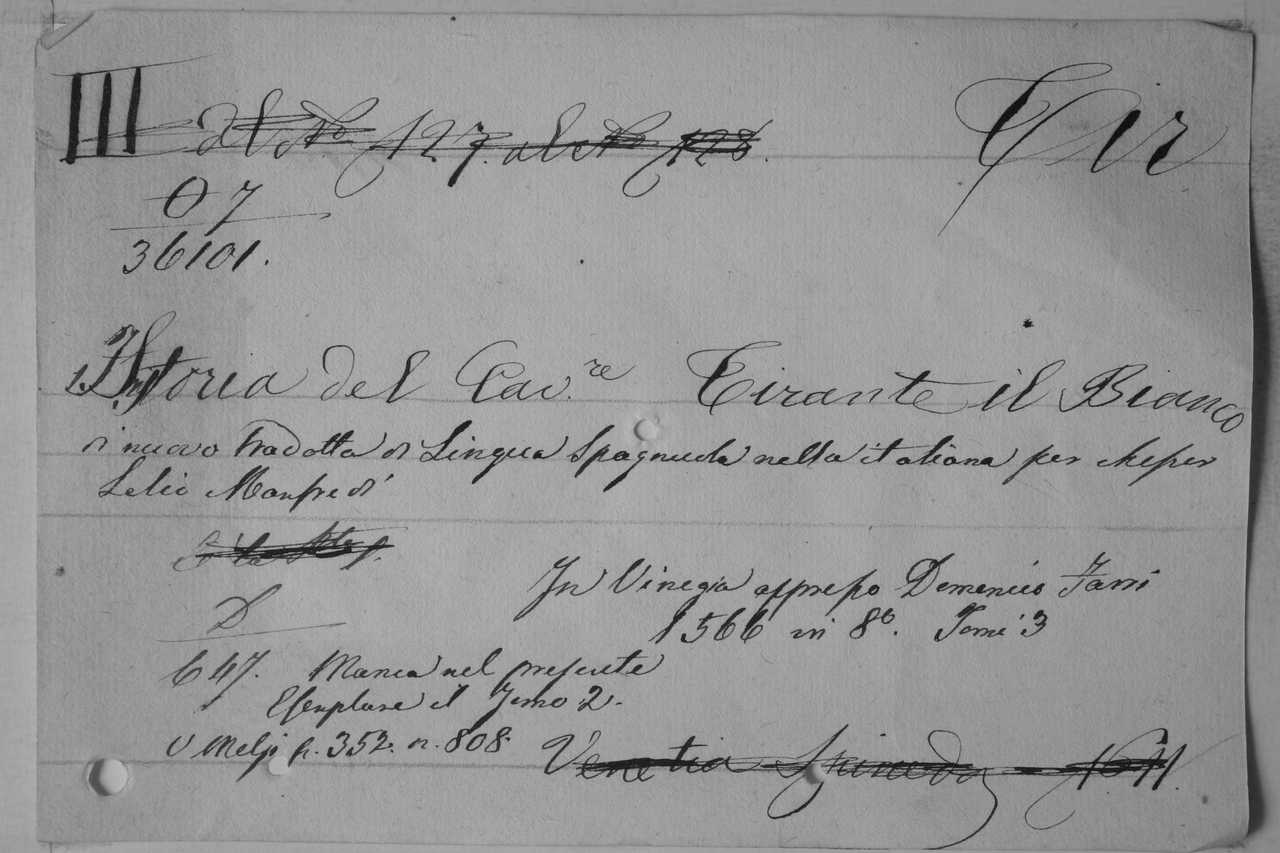 III dal No 127. al No 128. Tir
O 7
36101.
Istoria del Cav.re Tirante il Bianco
di nuovo tradotta di Lingua Spagnuola nella italiana per Meßer
Lelio Manfredi
In Vinegia appreßo Domenico Farri
1566 in 8o. Tomi 3
D
647. Manca nel presente
Esemplare il Tomo 2.
V Melzi p. 352. n. 808.
Venetia Spineda 1611.